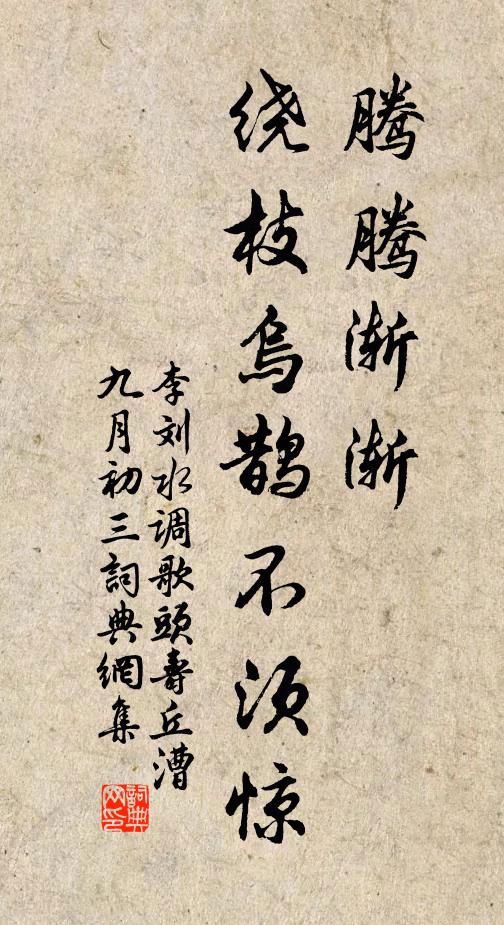 腾腾渐渐
绕枝乌鹊不须惊
李刘水调歌头寿丘漕
九月初三詞典網集
詞典
网印